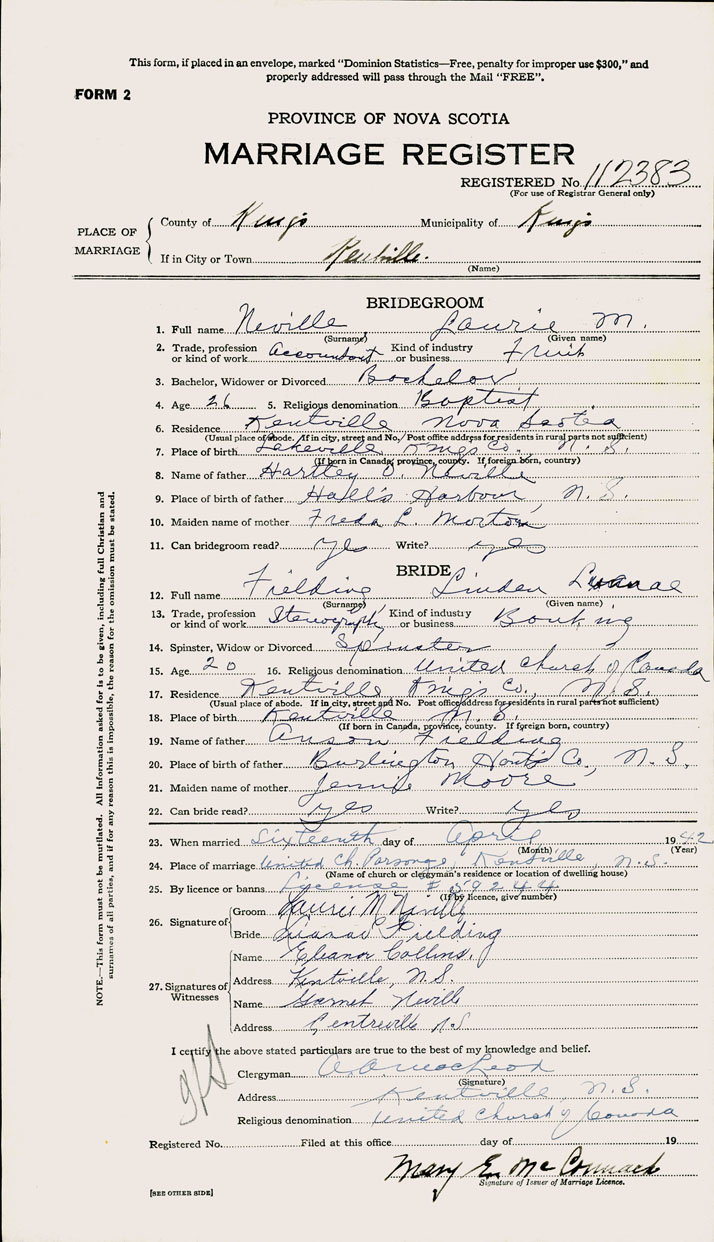 This form, if placed in an envelope, marked "Dominion Statistics—Free, penalty for improper use $300," and
properly addressed will pass through the Mail "FREE".
FORM 2
PROVINCE OF NOVA SCOTIA
MARRIAGE REGISTER
REGISTERED No. 112383
(For use of Registrar General only)
PLACE OF MARRIAGE
County of Kings Municipality of Kings
If in City or Town Kentville.
(Name)
BRIDEGROOM
1. Full name Neville Laurie M.
(Surname) (Given name)
2. Trade, profession or kind of work Accountant Kind of industry or business Fruit
3. Bachelor, Widower or Divorced Bachelor
4. Age 26 5. Religious denomination Baptist
6. Residence Kentville Nova Scotia
(Usual place of abode. If in city, street and No. Post office address for residents in rural parts not sufficient)
7. Place of birth Lakeville Kings Co. N. S.
(If born in Canada, province, county. If foreign born, country)
8. Name of father Hartley O. Neville
9. Place of birth of father Hall's Harbour, N. S.
10. Maiden name of mother Freda L. Morton
11. Can bridegroom read? yes Write? yes
BRIDE
12. Full name Fielding Linden Luanae
(Surname) (Given name)
13. Trade, profession or kind of work Stenography Kind of industry or business Banking
14. Spinster, Widow or Divorced Spinster
15. Age 20 16. Religious denomination United Church of Canada
17. Residence Kentville Kings Co., N. S.
(Usual place of abode. If in city, street and No. Post office address for residents in rural parts not sufficient)
18. Place of birth Kentville N. S.
(If born in Canada, province, county. If foreign born, country)
19. Name of father Anson Fielding
20. Place of birth of father Burlington Hants Co., N. S.
21. Maiden name of mother Jennie Moore
22. Can bride read? yes Write? yes
23. When married Sixteenth day of April 1942
(Month) (Year)
24. Place of marriage United Ch. Parsonage, Kentville, N. S.
(Name of church or clergyman's residence or location of dwelling house)
25. By licence or banns License # 59244
(If by licence, give number)
26. Signature of
Groom Laurie M Neville
Bride Fielding
27. Signatures of Witnesses
Name Eleanor Collins.
Address Kentville, N.S.
Name Garnet Neville
Address Centreville N.S
I certify the above stated particulars are true to the best of my knowledge and belief.
Clergyman MacLeod
(Signature)
Address Kentville, N. S.
Religious denomination United Church of Canada
Registered No. Filed at this office day of 19
Mary E. McCormack
Signature of Issuer of Marriage Licence.
[SEE OTHER SIDE]
NOTE.—This form must not be mutilated. All Information asked for is to be given, including full Christian and
surnames of all parties, and if for any reason this is impossible, the reason for the omission must be stated.